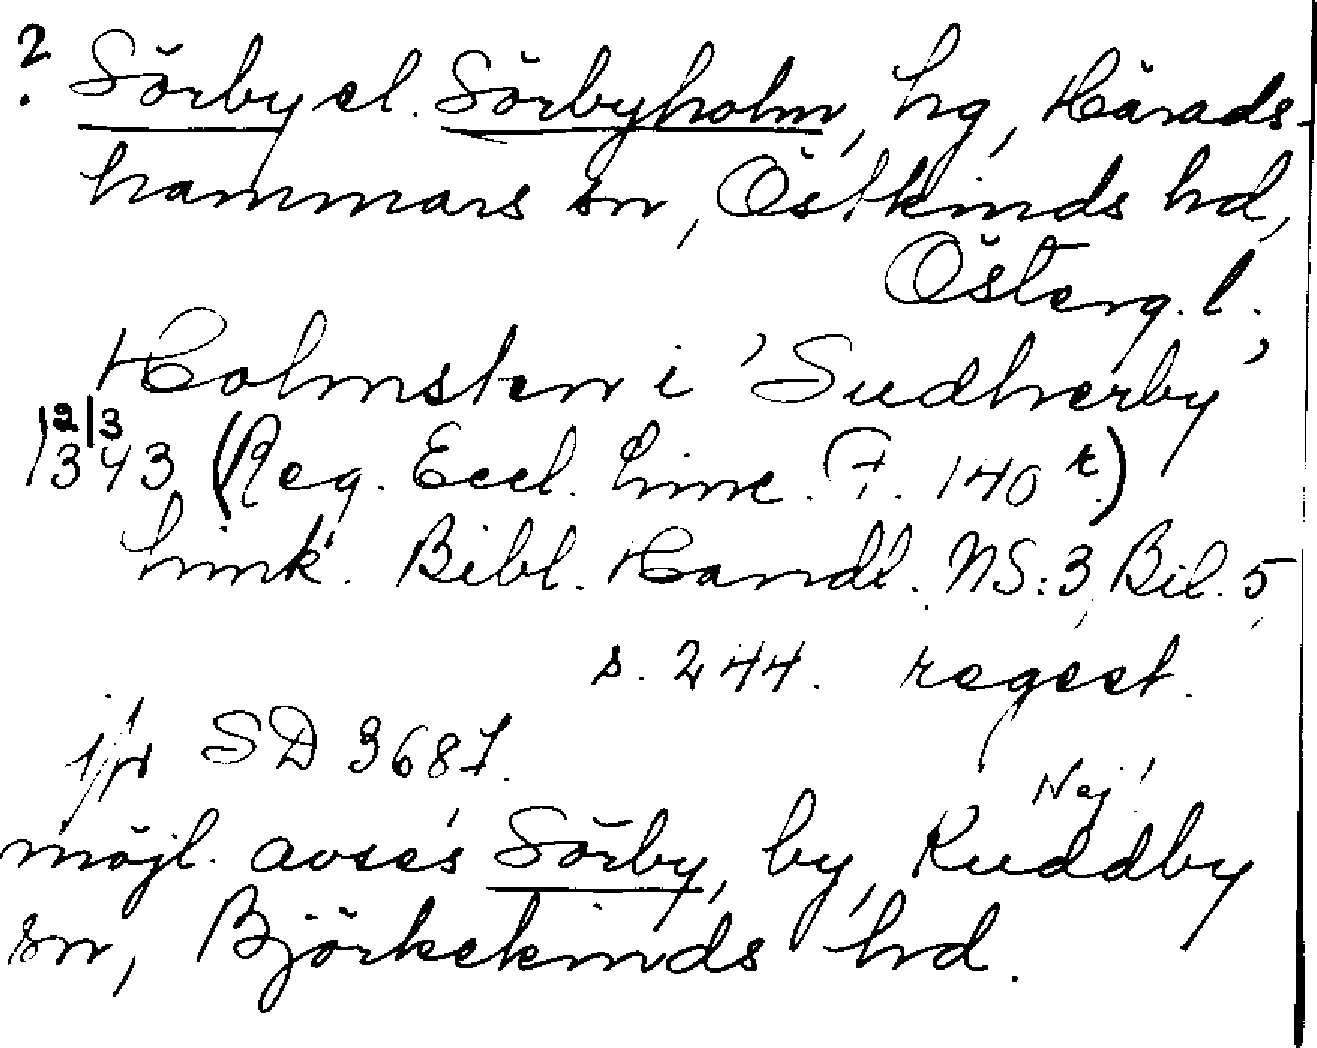 ? Sörby el. Sörbyholm, hg, Härads-
hammars sn, Östkinds hd,
Österg. l.
Holmsten i 'Sudherby'
12/3
1343 (Reg. Eccl. Linc. F. 140 r.)
Link. Bibl. Handl. NS:3, Bil. 5,
s. 244. regest.
jfr SD 3687.
Nej!
möjl. avses Sörby, by, Kuddby
sn, Björkekinds hd.